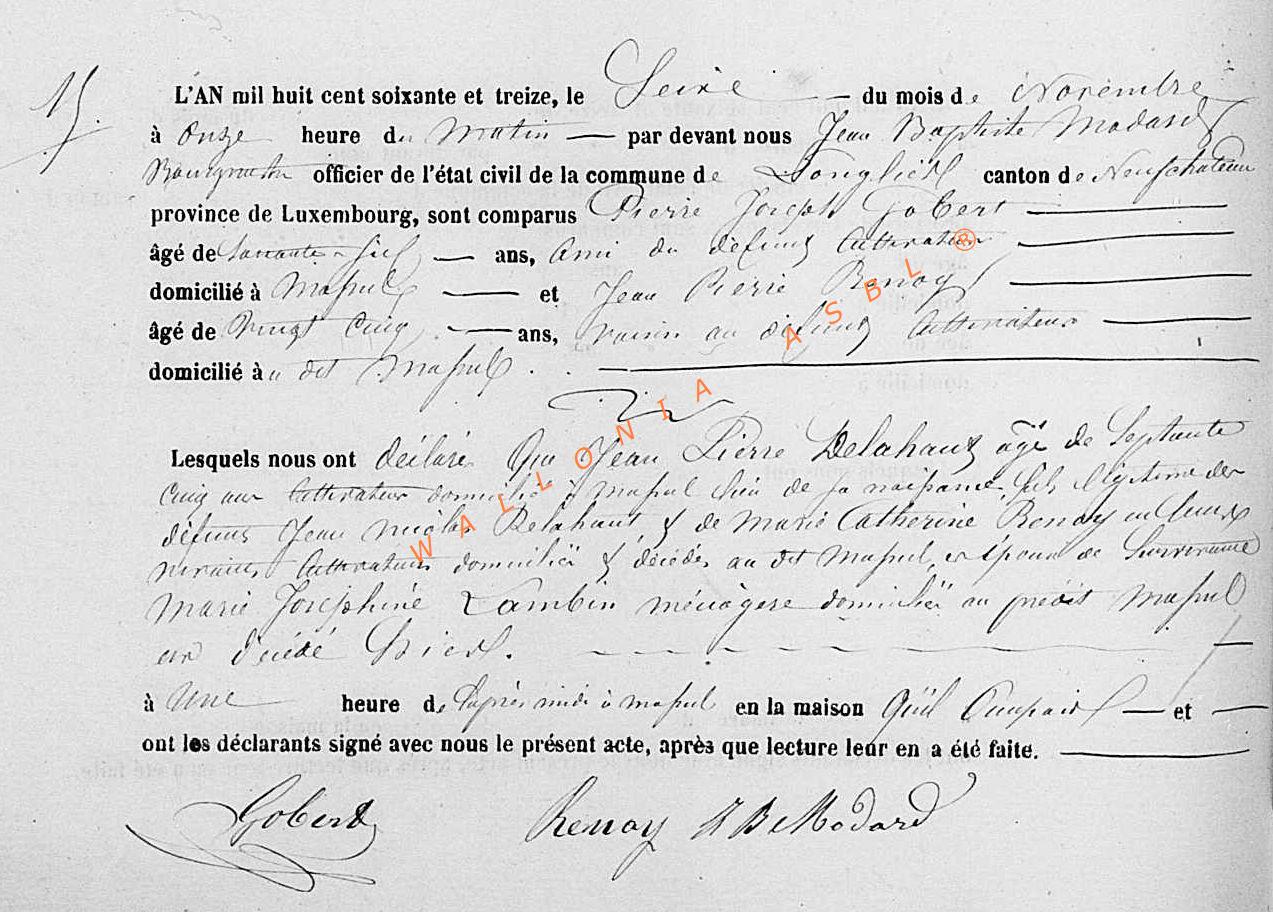 15.
L'AN mil huit cent soixante et treize, le Seize du mois de Novembre
à Onze heure du Matin par devant nous Jean Baptiste Modard
Bourgmestre officier de l'état civil de la commune de Longlier canton de Neufchateau
province de Luxembourg, sont comparus Pierre Joseph Gobert
âgé de ans, ami du défunt Cultivateur
domicilié à Massul et Jean Pierre Renoy
âgé de Vingt Cinq ans, voisin au défunt Cultivateur
domicilié au dit Massul.
Lesquels nous ont déclaré Que Jean Pierre Delahaut agé de Septante
Cinq ans Cultivateur domicilié à Massul lieu de sa naissance, fils légitime des
défunts Jean Nicolas Delahaut & de Marie Catherine Renoy en leurs
vivants Cultivateurs domiciliés & décédés au dit Massul, et époux de Survivante
Marie Josephine Lambin ménagère domiciliée au prédit Massul
est décédé hier.
à Une heure de l'après midi à Massul en la maison Qu'il Occupait et
ont les déclarants signé avec nous le présent acte, après que lecture leur en a été faite.
Gobert Renoy JB Modard
WALLONIA ASBL ®